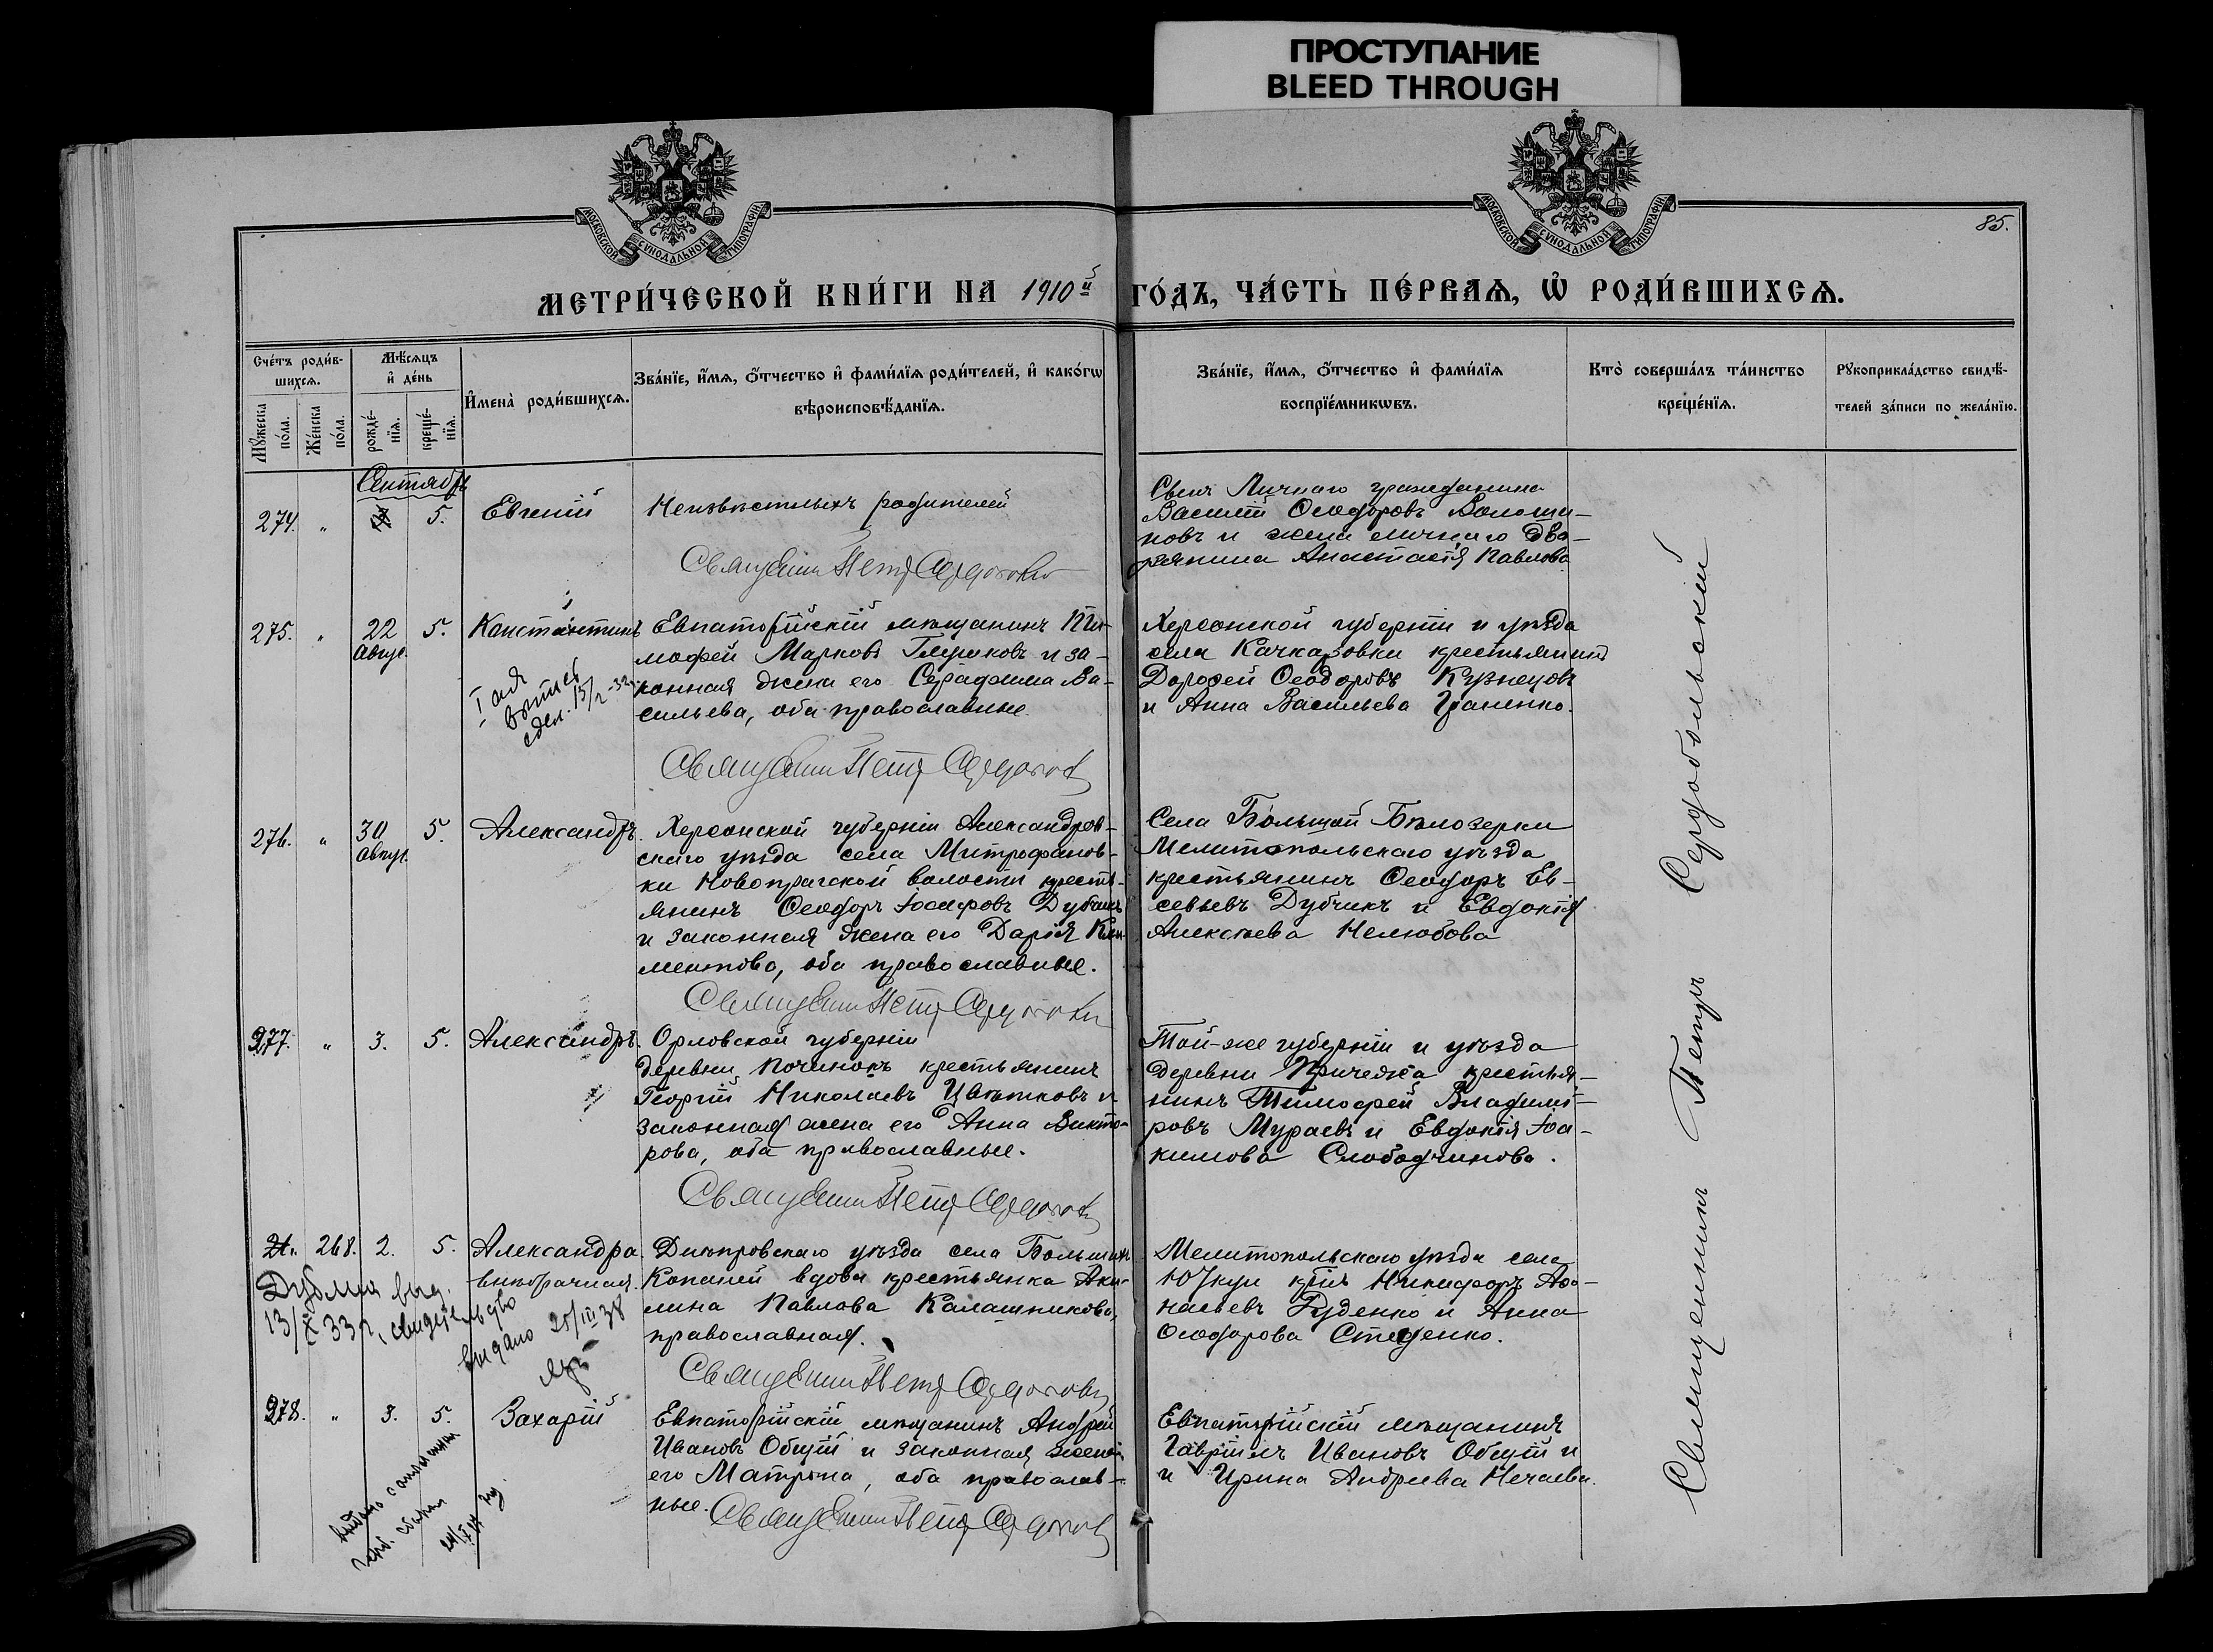 ПРОСТУПАНИЕ
BLEED THROUGH
МОСКОВСКОЙ СѴНОДАЛЬНОЙ ТИПОГРАФІИ
МОСКОВСКОЙ СѴНОДАЛЬНОЙ ТИПОГРАФІИ
85.
МЕТРИ́ЧЕСКОЙ КНИ́ГИ НА 1910й ГО́ДЪ, ЧА́СТЬ ПЕ́РВАѦ, Ѡ РОДИ́ВШИХСѦ.
Сче́тъ роди́в-
шихсѧ.
Мѣ́сѧцъ
и де́нь
Мꙋ́жеска
по́ла.
Же́нска
по́ла.
рожде́-
нїѧ.
креще́-
нїѧ.
И҆мена̀ роди́вшихсѧ.
Зва́нїе, и҆́мѧ, ѻ҆́тчество и҆ фами́лїѧ роди́телей, и҆ како́гѡ
вѣроисповѣ́данїѧ.
Зва́нїе, и҆́мѧ, ѻ҆́тчество и҆ фами́лїѧ
воспрїе́мникѡвъ.
Кто̀ соверша́лъ та́инство
креще́нїѧ.
Рꙋкоприкла́дство свидѣ́-
телей за́писи по жела́нїю.
Сентябрь
274. " 5. Евгеній
Неизвѣстныхъ родителей
Священникъ Петръ Сердобольскій
Сынъ Личнаго гражданина
Василій Ѳеодоровъ Волоши-
новъ и жена личнаго Дво-
рянина Анастасія Павлова
275. " 22 Авгус. 5. Константинъ
Евпаторійскій мѣщанинъ Ти-
мофей Марковъ Глушковъ и за-
конная жена его Серафима Ва-
сильева, оба православные.
Священникъ Петръ Сердобольскій
выпись
сдел. 15/2-32
Херсонской губерніи и уѣзда
села Качкаровки крестьянинъ
Дорофей Ѳеодоровъ Кузнецовъ
и Анна Васильева Граненко.
276. " 30 Авгус. 5. Александръ.
Херсонской губерніи Александров-
скаго уѣзда села Митрофанов-
ки Новопрагской волости кресть-
янинъ Ѳеодоръ Іосифовъ Дубчикъ
и законная жена его Дарія Кли-
ментова, оба православные.
Священникъ Петръ Сердобольскій
Села Большой Бѣлозерки
Мелитопольскаго уѣзда
крестьянинъ Ѳеодоръ Ев-
севьевъ Дубчикъ и Евдокія
Алексѣева Нелюбова
277. " 3. 5. Александръ.
Орловской губерніи
деревни Починокъ крестьянинъ
Георгій Николаевъ Цвѣтковъ и
законная жена его Анна Викто-
рова, оба православные.
Священникъ Петръ Сердобольскій
Той-же губерніи и уѣзда
деревни крестья-
нинъ Тимофей Владимі-
ровъ Мураевъ и Евдокія Іоа-
кимова Слободчикова.
268. 2. 5. Александра
внѣбрачная.
Днѣпровскаго уѣзда села Большихъ
Копаней вдова крестьянка Аки-
лина Павлова Калашникова,
православная.
Священникъ Петръ Сердобольскій
13/X 33 г. свидетельство
выдано 25/III 38
Мелитопольскаго уѣзда села
Юзкуи Никифоръ Аѳа-
насьевъ Руденко и Анна
Ѳеодорова Стеценко.
278. " 3. 5. Захарій
Евпаторійскій мѣщанинъ Андрей
Ивановъ Общій и законная жена
его Матрона, оба православ-
ные.
Священникъ Петръ Сердобольскій
Евпаторійскій мѣщанинъ
Гавріилъ Ивановъ Общій и
и Ирина Андреева Нечаева.
Священникъ Петръ Сердобольскій